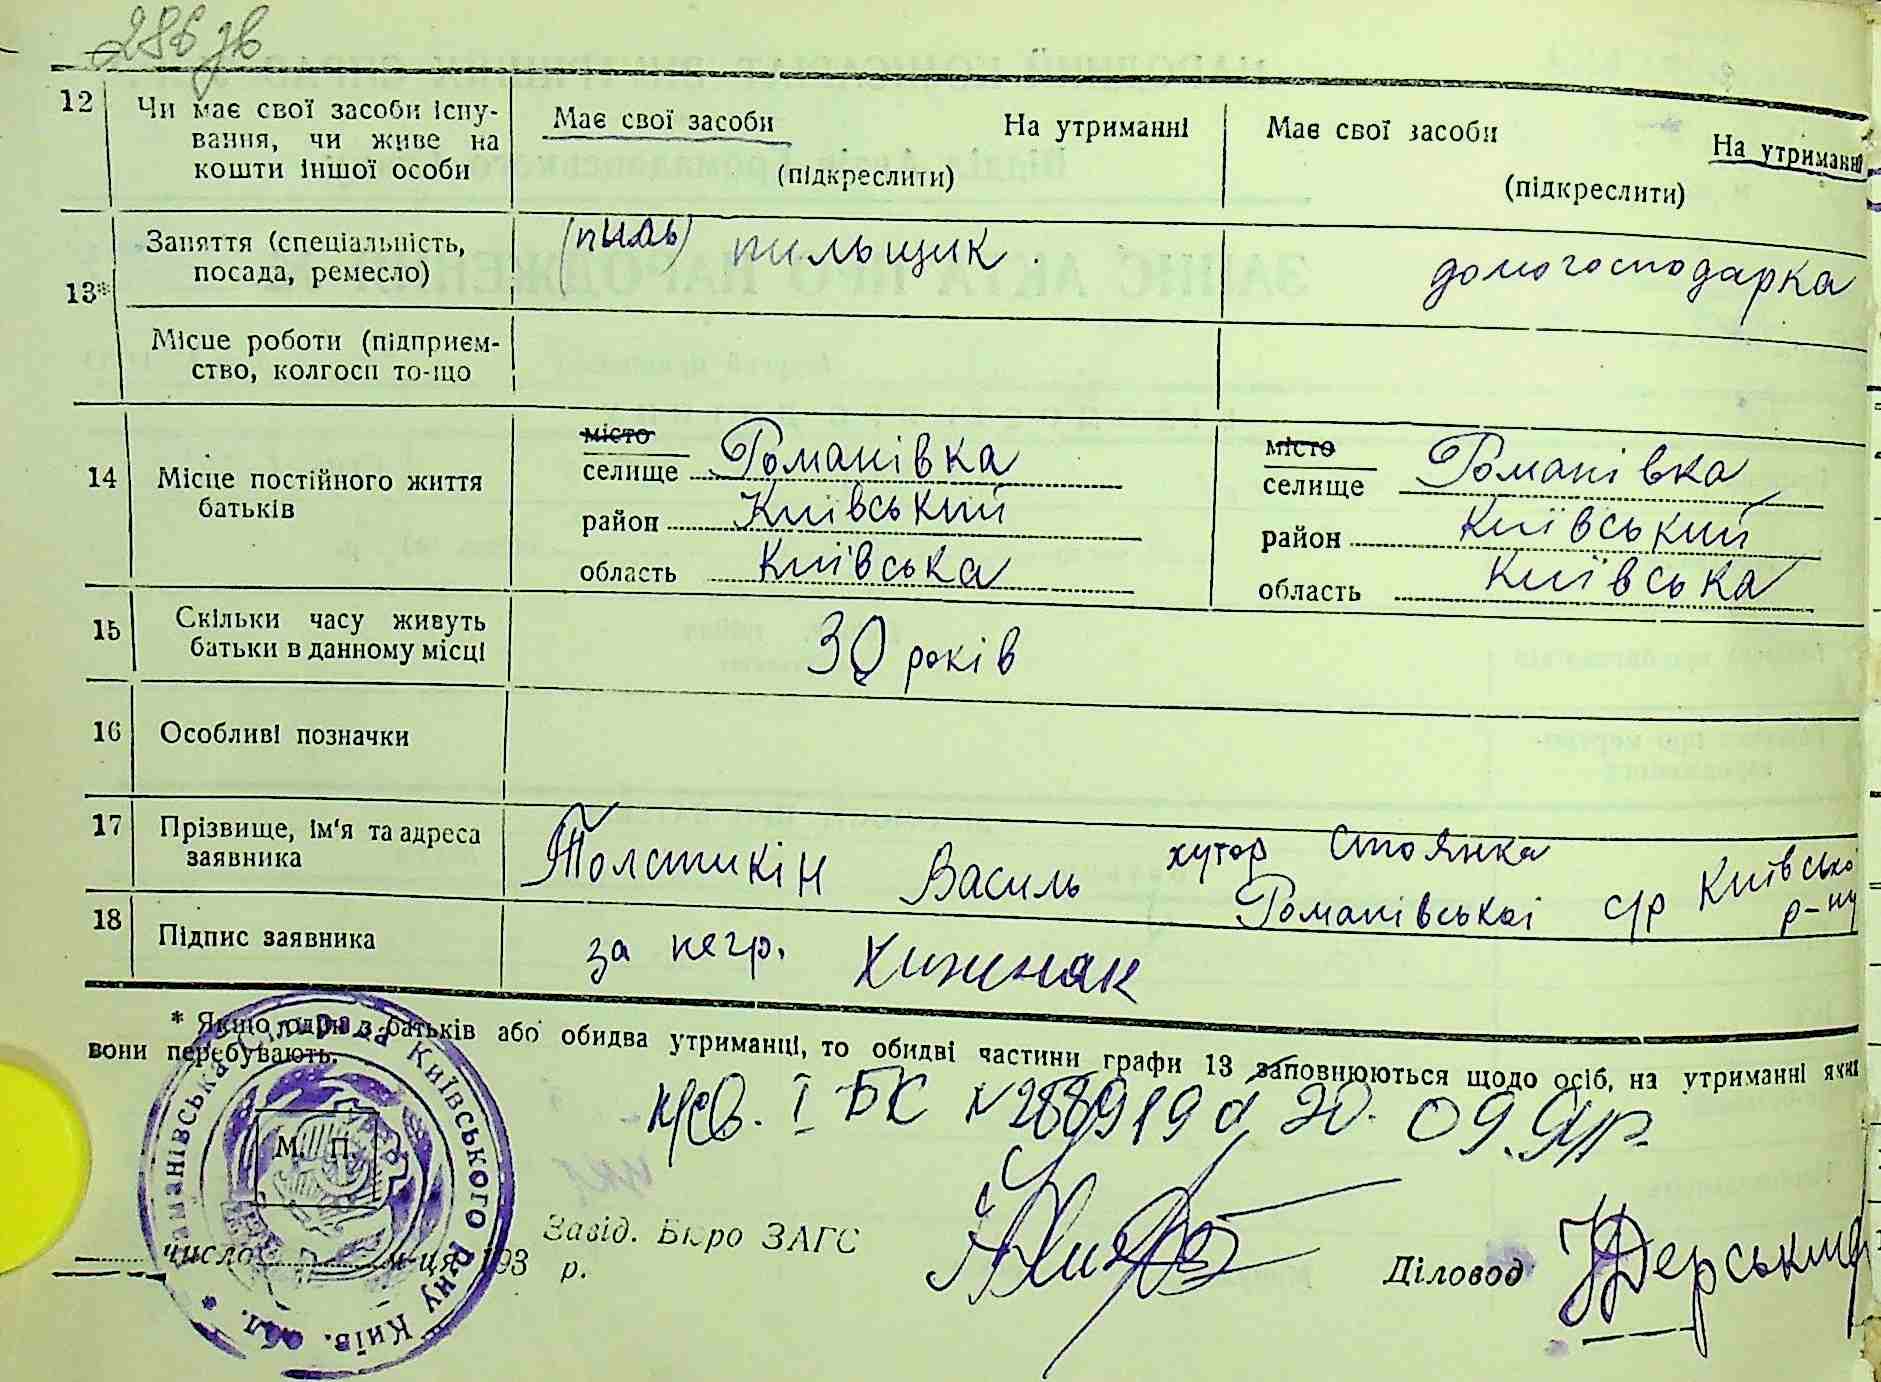 286 зв
12 Чи має свої засоби існу-
вання, чи живе на
кошти іншої особи
Має свої засоби На утриманні
(підкреслити)
Має свої засоби На утриманні
(підкреслити)
13* Заняття (спеціальність,
посада, ремесло)
(пиль) пильщик
домогосподарка
Місце роботи (підприєм-
ство, колгосп то-що
14 Місце постійного життя
батьків
місто
селище Романівка
район Київський
область Київська
місто
селище Романівка
район Київський
область Київська
15 Скільки часу живуть
батьки в данному місці
30 років
16 Особливі позначки
17 Прізвище, ім'я та адреса
заявника
Толстикін Василь хутор Стоянка
Романівської с/р Київсько
р-ну
18 Підпис заявника
за негр. Хижняк
* Якщо один з батьків або обидва утриманці, то обидві частини графи 13 заповнюються щодо осіб, на утриманні яких
вони перебувають.
І БК № 288919 20.09.
М. П.
Романівська Сільрада Київського р-ну Київ. обл. *
число м-ця 193 р.
Завід. Бюро ЗАГС
Діловод